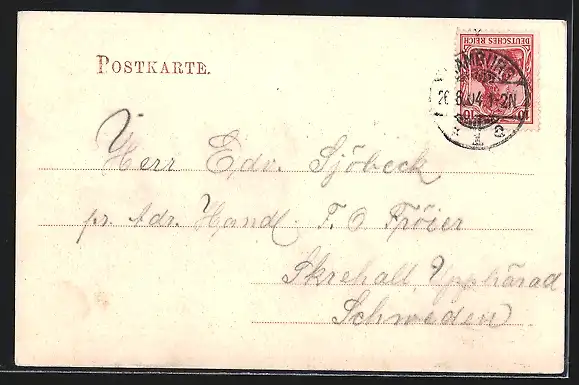 POSTKARTE.
DEUTSCHES REICH
10 10
HAMBURG
26.8.04.1-2N
* 1 c
Herr Edv. Sjöbeck
pr. Adr. Handl. F. O. Fröier
Skrehall, Upphärad
Schweden